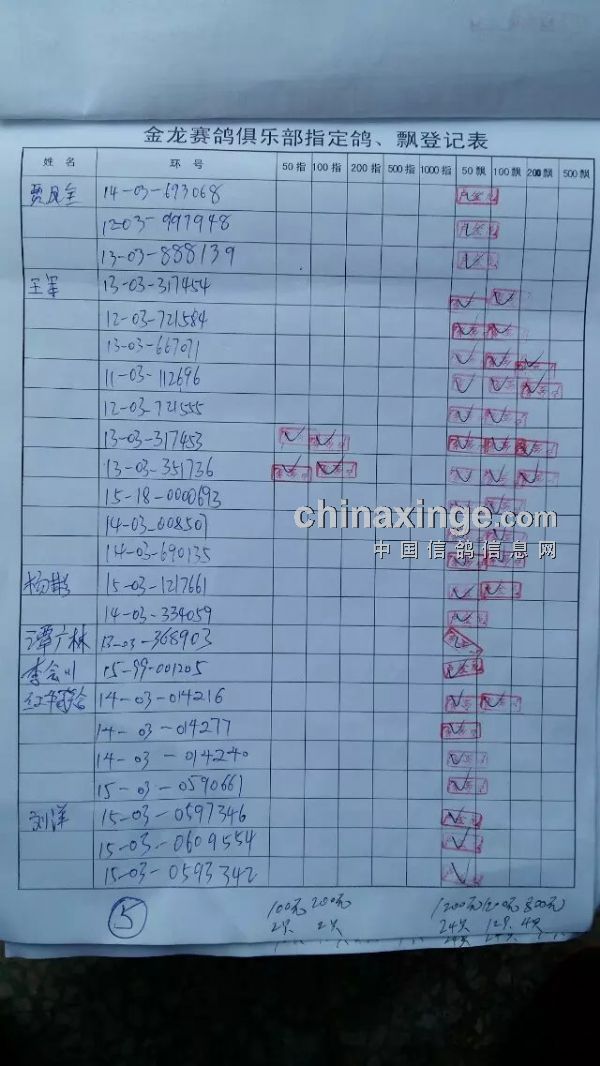 金龙赛鸽俱乐部指定鸽、飘登记表
姓 名 环 号 50指 100指 200指 500指 1000指 50飘 100飘 200飘 500飘
14-03-693068
1203-997948
13-03-888139
王军 13-03-317454
12-03-721584
13-03-667071
11-03-112696
12-03-721555
13-03-317453
13-03-351736
15-18-0000693
chinaxinge.com
14-03-008507
中国信鸽信息网
14-03-690135
15-03-1217661
14-03-334059
谭广林 13-03-368903
李会川 15-99-001205
14-03-014216
14-03-014277
14-03-014240
15-03-0590661
刘洋 15-03-0597346
15-03-0609554
15-03-0593342
⑤ 100元 200元 1200元 1200元 800元
2只 2只 24只 12只 4只